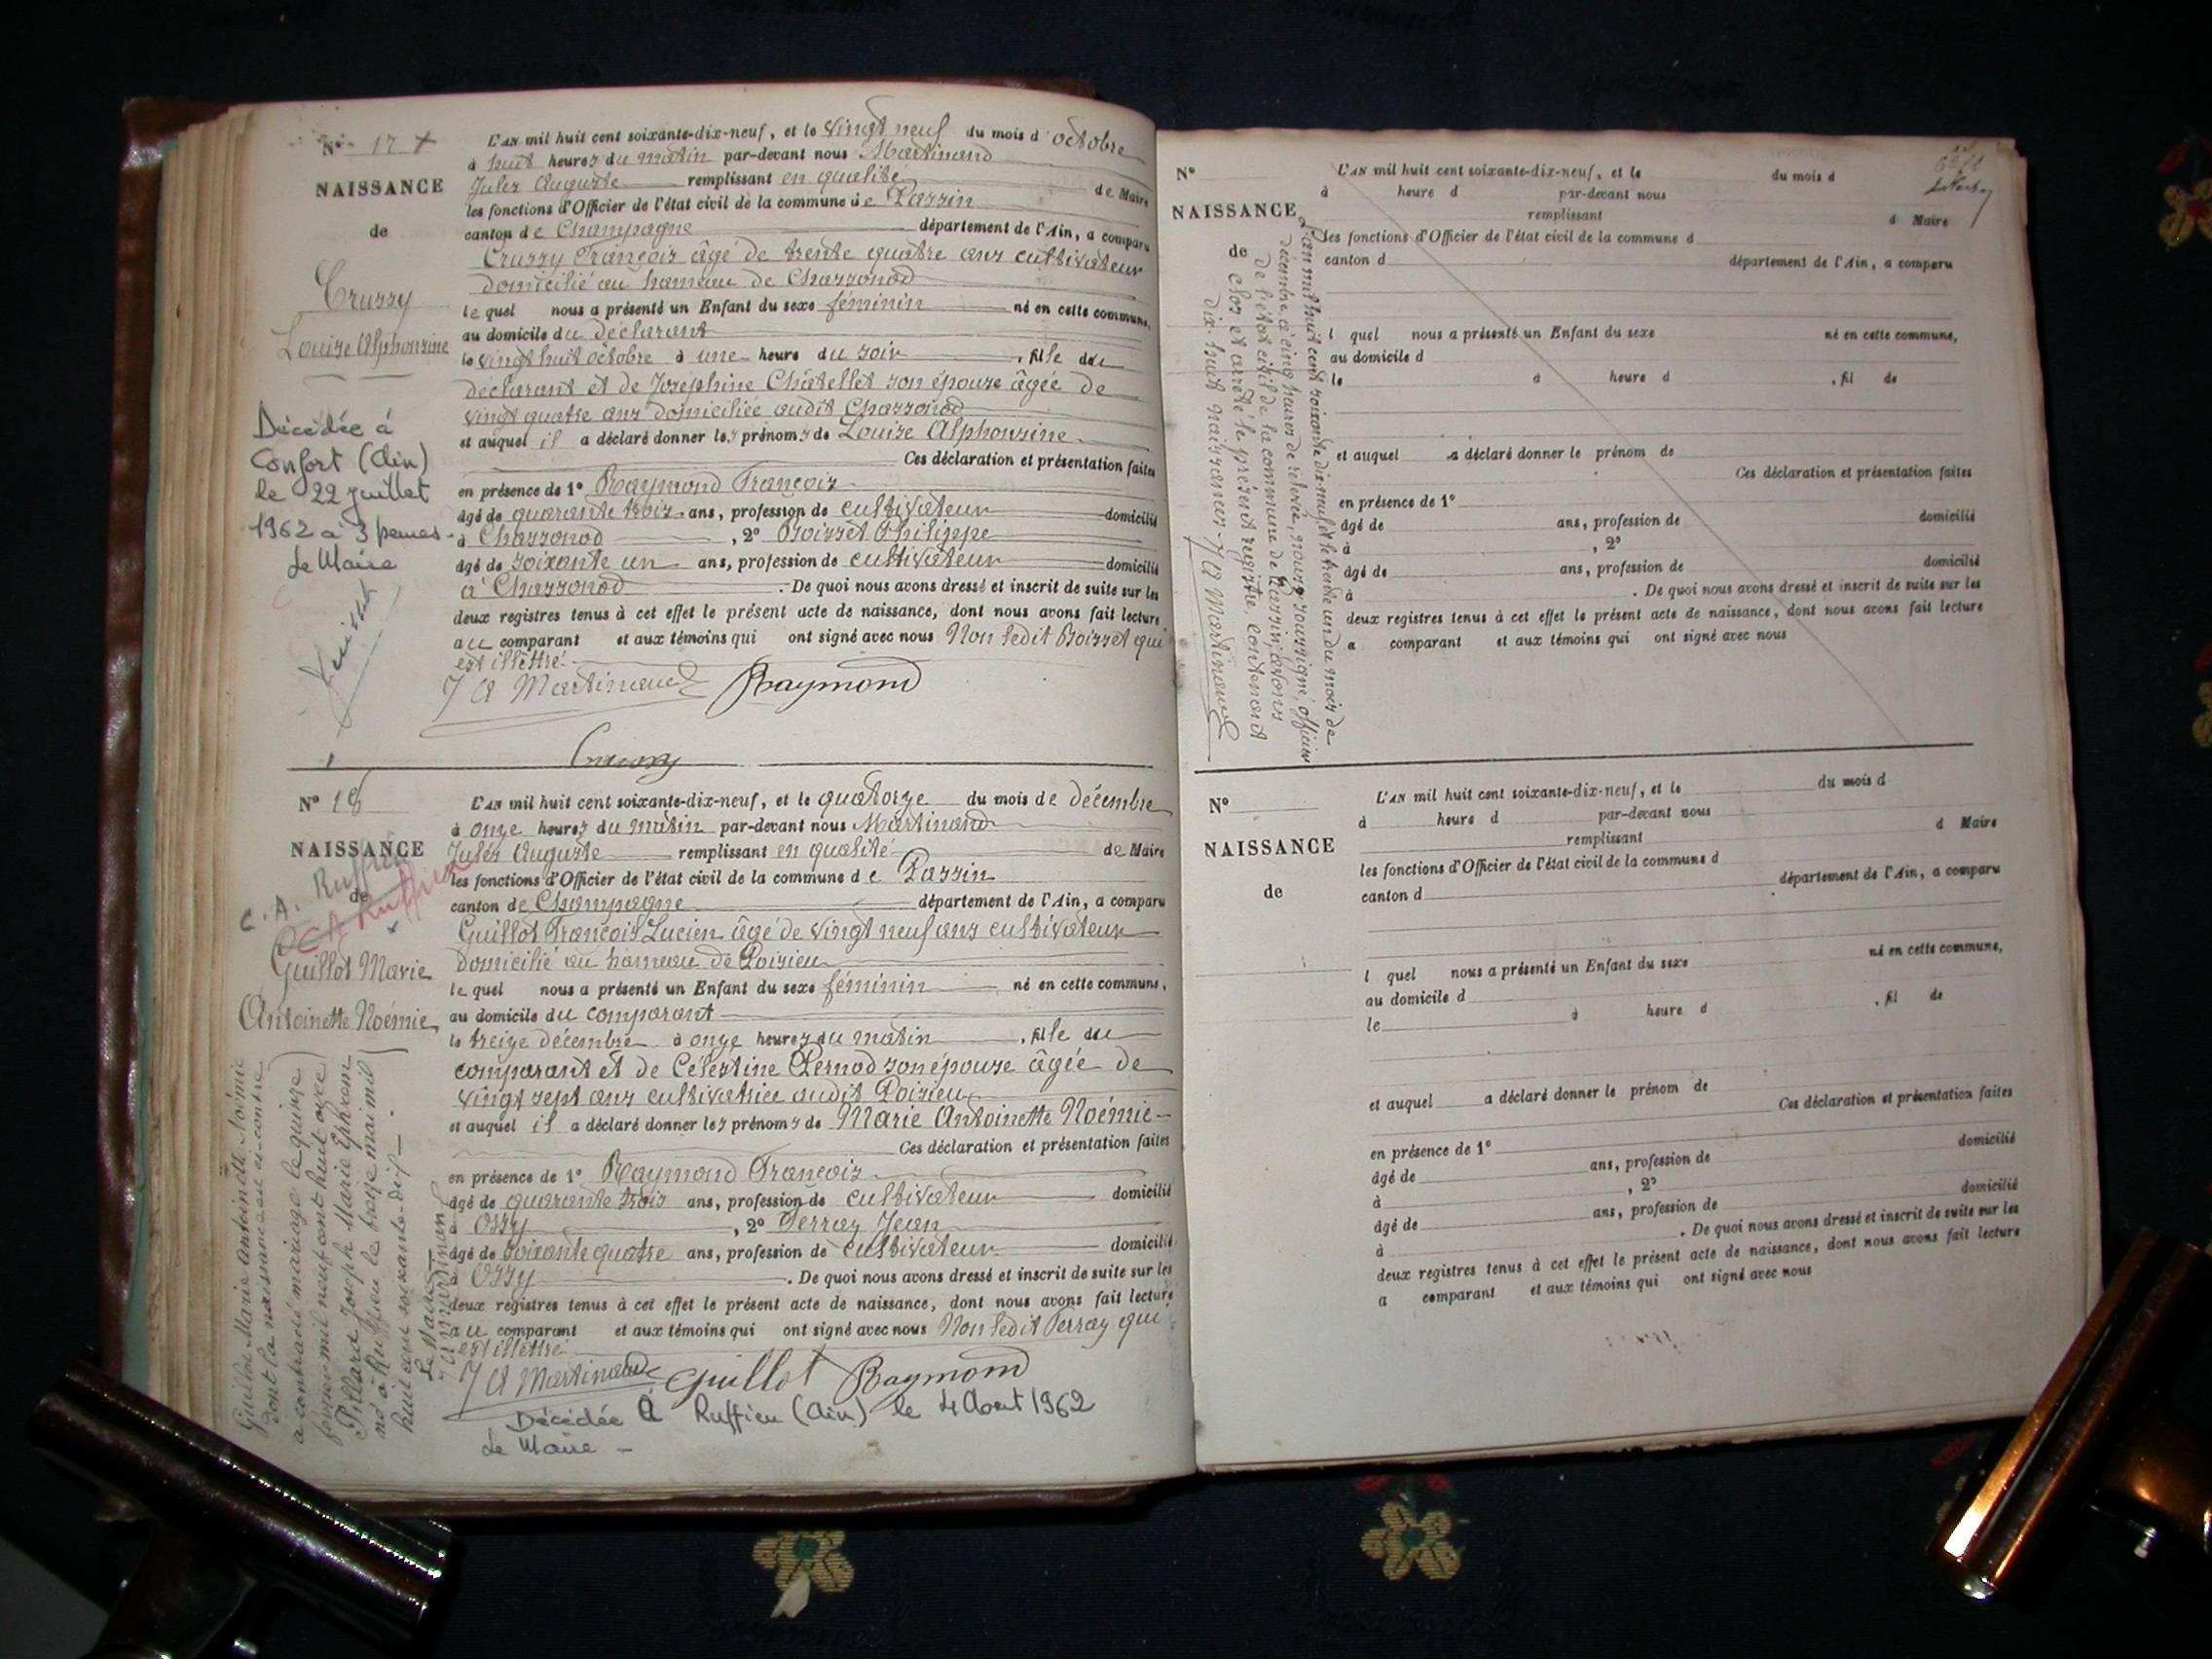 N° 17 +
NAISSANCE
de
Cruzzy
Louise Alphonsine
Décédée à
Confort (Ain)
le 22 juillet
1962 à 3 heures
Le Maire
L'AN mil huit cent soixante-dix-neuf, et le vingt neuf du mois d'octobre
à huit heures du matin par-devant nous Martinand
Jules Auguste remplissant en qualité de Maire
les fonctions d'Officier de l'état civil de la commune de Passin
canton de Champagne département de l'Ain, a comparu
Cruzzy François âgé de trente quatre ans cultivateur
domicilié au hameau de Chassonod
lequel nous a présenté un Enfant du sexe féminin né en cette commune,
au domicile du déclarant
le vingt huit octobre à une heure du soir, fille du
déclarant et de Joséphine Châtellet son épouse âgée de
vingt quatre ans domiciliée audit Chassonod
et auquel il a déclaré donner les prénoms de Louise Alphonsine
Ces déclaration et présentation faites
en présence de 1° Raymond François
âgé de quarante trois ans, profession de cultivateur domicilié
à Chassonod, 2° Boisset Philippe
âgé de soixante un ans, profession de cultivateur domicilié
à Chassonod. De quoi nous avons dressé et inscrit de suite sur les
deux registres tenus à cet effet le présent acte de naissance, dont nous avons fait lecture
au comparant et aux témoins qui ont signé avec nous Non ledit Boisset qui
est illettré.
J A Martinand Raymond
N° 18
NAISSANCE
de
C. A. Ruffieu
CA Ruffieu
Guillot Marie
Antoinette Noémie
Guillot Marie Antoinette Noémie
dont la naissance est ci-contre
a contracté mariage le quinze
février mil neuf cent huit avec
Pillard Joseph Marie Ephrem
né à Ruffieu le treize mai mil
huit cent soixante-dix.
Le Maire
J A Martinand
L'AN mil huit cent soixante-dix-neuf, et le quatorze du mois de décembre
à onze heures du matin par-devant nous Martinand
Jules Auguste remplissant en qualité de Maire
les fonctions d'Officier de l'état civil de la commune de Passin
canton de Champagne département de l'Ain, a comparu
Guillot François Lucien âgé de vingt neuf ans cultivateur
domicilié au hameau de Poisieu
lequel nous a présenté un Enfant du sexe féminin né en cette commune,
au domicile du comparant
le treize décembre à onze heures du matin, fille du
comparant et de Célestine Pernod son épouse âgée de
vingt sept ans cultivatrice audit Poisieu
et auquel il a déclaré donner les prénoms de Marie Antoinette Noémie
Ces déclaration et présentation faites
en présence de 1° Raymond François
âgé de quarante trois ans, profession de cultivateur domicilié
à Ossy, 2° Perray Jean
âgé de soixante quatre ans, profession de cultivateur domicilié
à Ossy. De quoi nous avons dressé et inscrit de suite sur les
deux registres tenus à cet effet le présent acte de naissance, dont nous avons fait lecture
au comparant et aux témoins qui ont signé avec nous Non ledit Perray qui
est illettré
J A Martinand Guillot Raymond
Décédée à Ruffieu (Ain) le 4 Aout 1962
Le Maire
N°
NAISSANCE
de
L'an mil huit cent soixante dix neuf et le trente un du mois de
décembre à cinq heures de relevée, nous soussigné, officier
de l'état civil de la commune de Passin, avons
clos et arrêté le présent registre contenant
dix huit naissances. J A Martinand
L'AN mil huit cent soixante-dix-neuf, et le du mois d
à heure d par-devant nous
remplissant d Maire
les fonctions d'Officier de l'état civil de la commune d
canton d département de l'Ain, a comparu
l quel nous a présenté un Enfant du sexe né en cette commune,
au domicile d
le à heure d , fil de
et auquel a déclaré donner le prénom de
Ces déclaration et présentation faites
en présence de 1°
âgé de ans, profession de domicilié
à , 2°
âgé de ans, profession de domicilié
à . De quoi nous avons dressé et inscrit de suite sur les
deux registres tenus à cet effet le présent acte de naissance, dont nous avons fait lecture
a comparant et aux témoins qui ont signé avec nous
N°
NAISSANCE
de
L'AN mil huit cent soixante-dix-neuf, et le du mois d
à heure d par-devant nous
remplissant d Maire
les fonctions d'Officier de l'état civil de la commune d
canton d département de l'Ain, a comparu
l quel nous a présenté un Enfant du sexe né en cette commune,
au domicile d
le à heure d , fil de
et auquel a déclaré donner le prénom de
Ces déclaration et présentation faites
en présence de 1°
âgé de ans, profession de domicilié
à , 2°
âgé de ans, profession de domicilié
à . De quoi nous avons dressé et inscrit de suite sur les
deux registres tenus à cet effet le présent acte de naissance, dont nous avons fait lecture
a comparant et aux témoins qui ont signé avec nous